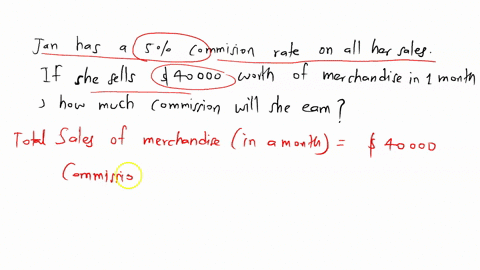 Jan has a 5% commision rate on all her sales.
If she sells $40000 worth of merchandise in 1 month
, how much commission will she earn?
Total Sales of merchandise (in a month) = $ 40000
Commissio